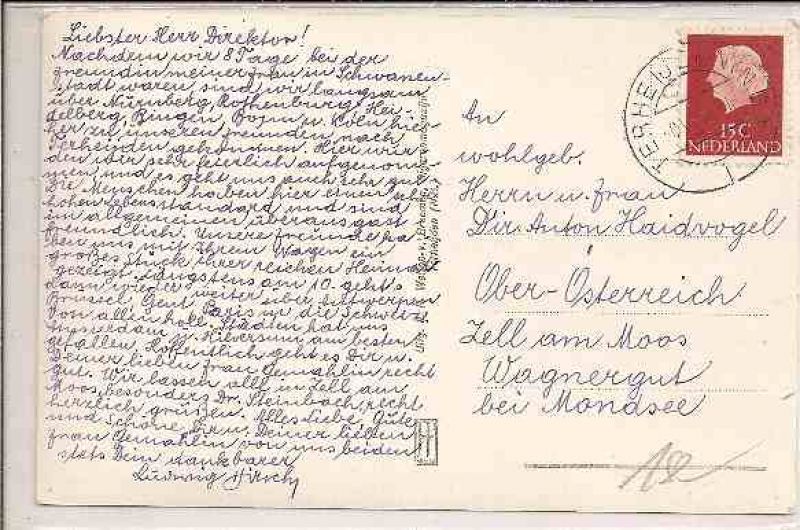 Liebster Herr Direktor!
Nachdem wir 8 Tage bei der
freundin meiner frau in Schwanen-
stadt waren sind wir langsam
über Nürnberg, Rothenburg, Hei-
delberg, Bingen, Bonn u. Köln hie-
her zu unseren freunden nach
Terheinden gekommen. Hier wur-
den wir sehr feierlich aufgenom-
men und es geht uns auch sehr gut.
Die Menschen haben hier einen
hohen Lebensstandard und sind
im allgemeinen überaus gast
freundlich. Unsere freunde ha-
ben uns mit Ihrem Wagen ein
großes Stück ihrer reichen Heimat
gezeigt. Längstens am 10. geht's
dann wieder weiter über Antwerpen
Brüssel, Gent, Paris in die Schweiz.
Von allen holl. Städten hat uns
Amsterdam u. Hilversum am besten
gefallen. Hoffentlich geht es Dir u.
Deiner lieben frau Gemahlin recht
gut. Wir lassen alle in Zell am
Moos, besonders Dr. Steinbach, recht
herzlich grüßen. Alles Liebe, Gute
und Schöne, Dir u. Deiner lieben
frau Gemahlin von uns beiden
stets Dein dankbarer
Ludwig Hirsch
An
wohlgeb.
Herrn u. frau
Dir. Anton Haidvogel
Ober-Österreich
Zell am Moos
Wagnergut
bei Mondsee
15 C
NEDERLAND
TERHEIJDEN